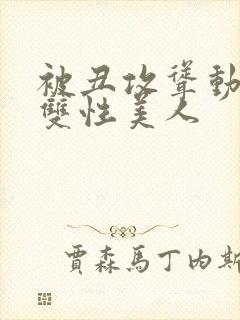 被丑攻聳動
雙性美人
賈森馬丁內斯